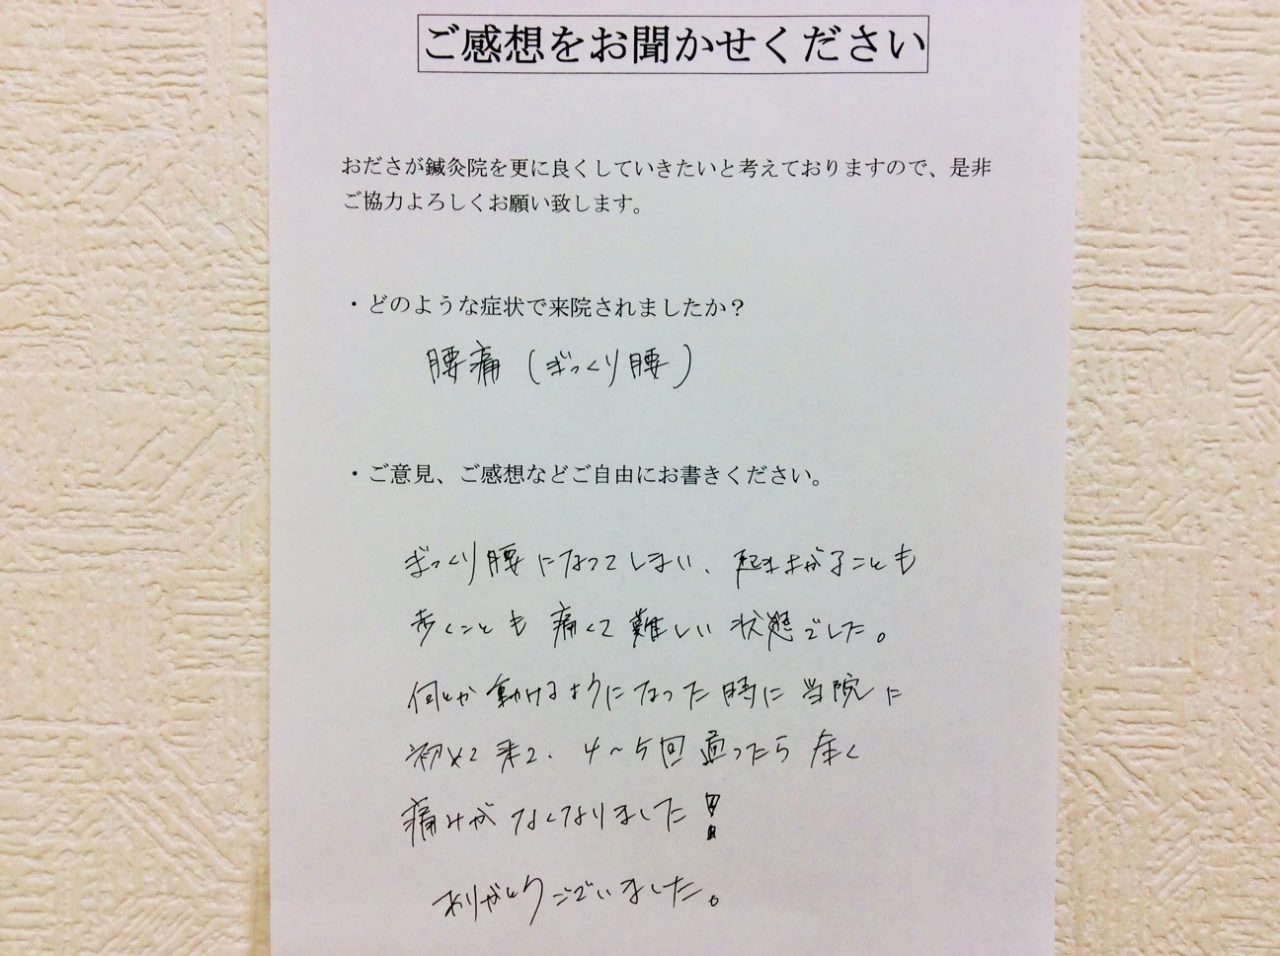 ご感想をお聞かせください
おださが鍼灸院を更に良くしていきたいと考えておりますので、是非
ご協力よろしくお願い致します。
・どのような症状で来院されましたか？
腰痛（ぎっくり腰）
・ご意見、ご感想などご自由にお書きください。
ぎっくり腰になってしまい、起き上がることも
歩くことも痛くて難しい状態でした。
何とか動けるようになった時に当院に
初めて来て、4～5回通ったら全く
痛みがなくなりました！
ありがとうございました。